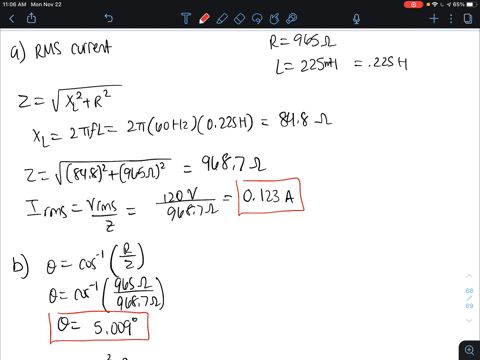 11:06 AM Mon Nov 22
65%
a) RMS current
R = 965 Ω
L = 225mH = .225 H
Z = √(X_L² + R²)
X_L = 2πfL = 2π(60Hz)(0.225H) = 84.8 Ω
Z = √((84.8)² + (965Ω)²) = 968.7 Ω
I rms = Vrms/Z = 120 V/968.7Ω = 0.123 A
b) θ = cos⁻¹(R/Z)
θ = cos⁻¹(965Ω/968.7Ω)
θ = 5.009°
88
89